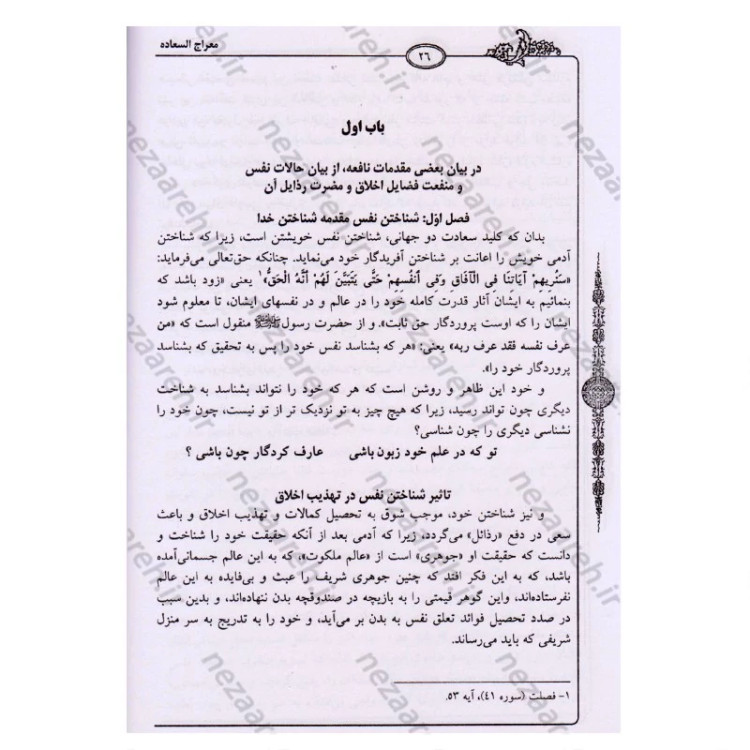 معراج السعاده
۲۶
باب اول
در بیان بعضی مقدمات نافعه، از بیان حالات نفس
و منفعت فضایل اخلاق و مضرت رذایل آن
فصل اوّل: شناختن نفس مقدمه شناختن خدا
بدان که کلید سعادت دو جهانی، شناختن نفس خویشتن است، زیرا که شناختن
آدمی خویش را اعانت بر شناختن آفریدگار خود می‌نماید. چنانکه حق‌تعالی می‌فرماید:
«سَنُرِيهِمْ آيَاتِنَا فِي الْآفَاقِ وَفِي أَنْفُسِهِمْ حَتَّى يَتَبَيَّنَ لَهُمْ أَنَّهُ الْحَقُّ»۱ یعنی «زود باشد که
بنمائیم به ایشان آثار قدرت کامله خود را در عالم و در نفسهای ایشان، تا معلوم شود
ایشان را که اوست پروردگار حق ثابت». و از حضرت رسولﷺ منقول است که «من
عرف نفسه فقد عرف ربه» یعنی: «هر که بشناسد نفس خود را پس به تحقیق که بشناسد
پروردگار خود را».
و خود این ظاهر و روشن است که هر که خود را نتواند بشناسد به شناخت
دیگری چون تواند رسید، زیرا که هیچ چیز به تو نزدیک تر از تو نیست، چون خود را
نشناسی دیگری را چون شناسی؟
تو که در علم خود زبون باشی عارف کردگار چون باشی ؟
تاثیر شناختن نفس در تهذیب اخلاق
و نیز شناختن خود، موجب شوق به تحصیل کمالات و تهذیب اخلاق و باعث
سعی در دفع «رذائل» می‌گردد، زیرا که آدمی بعد از آنکه حقیقت خود را شناخت و
دانست که حقیقت او «جوهری» است از «عالم ملکوت»، که به این عالم جسمانی‌آمده
باشد، که به این فکر افتد که چنین جوهری شریف را عبث و بی‌فایده به این عالم
نفرستاده‌اند، واین گوهر قیمتی را به بازیچه در صندوقچه بدن ننهاده‌اند، و بدین سبب
در صدد تحصیل فوائد تعلق نفس به بدن بر می‌آید، و خود را به تدریج به سر منزل
شریفی که باید می‌رساند.
۱- فصلت (سوره ۴۱)، آیه ۵۳.
nezaareh.ir
nezaareh.ir
nezaareh.ir
nezaareh.ir
nezaareh.ir
nezaareh.ir